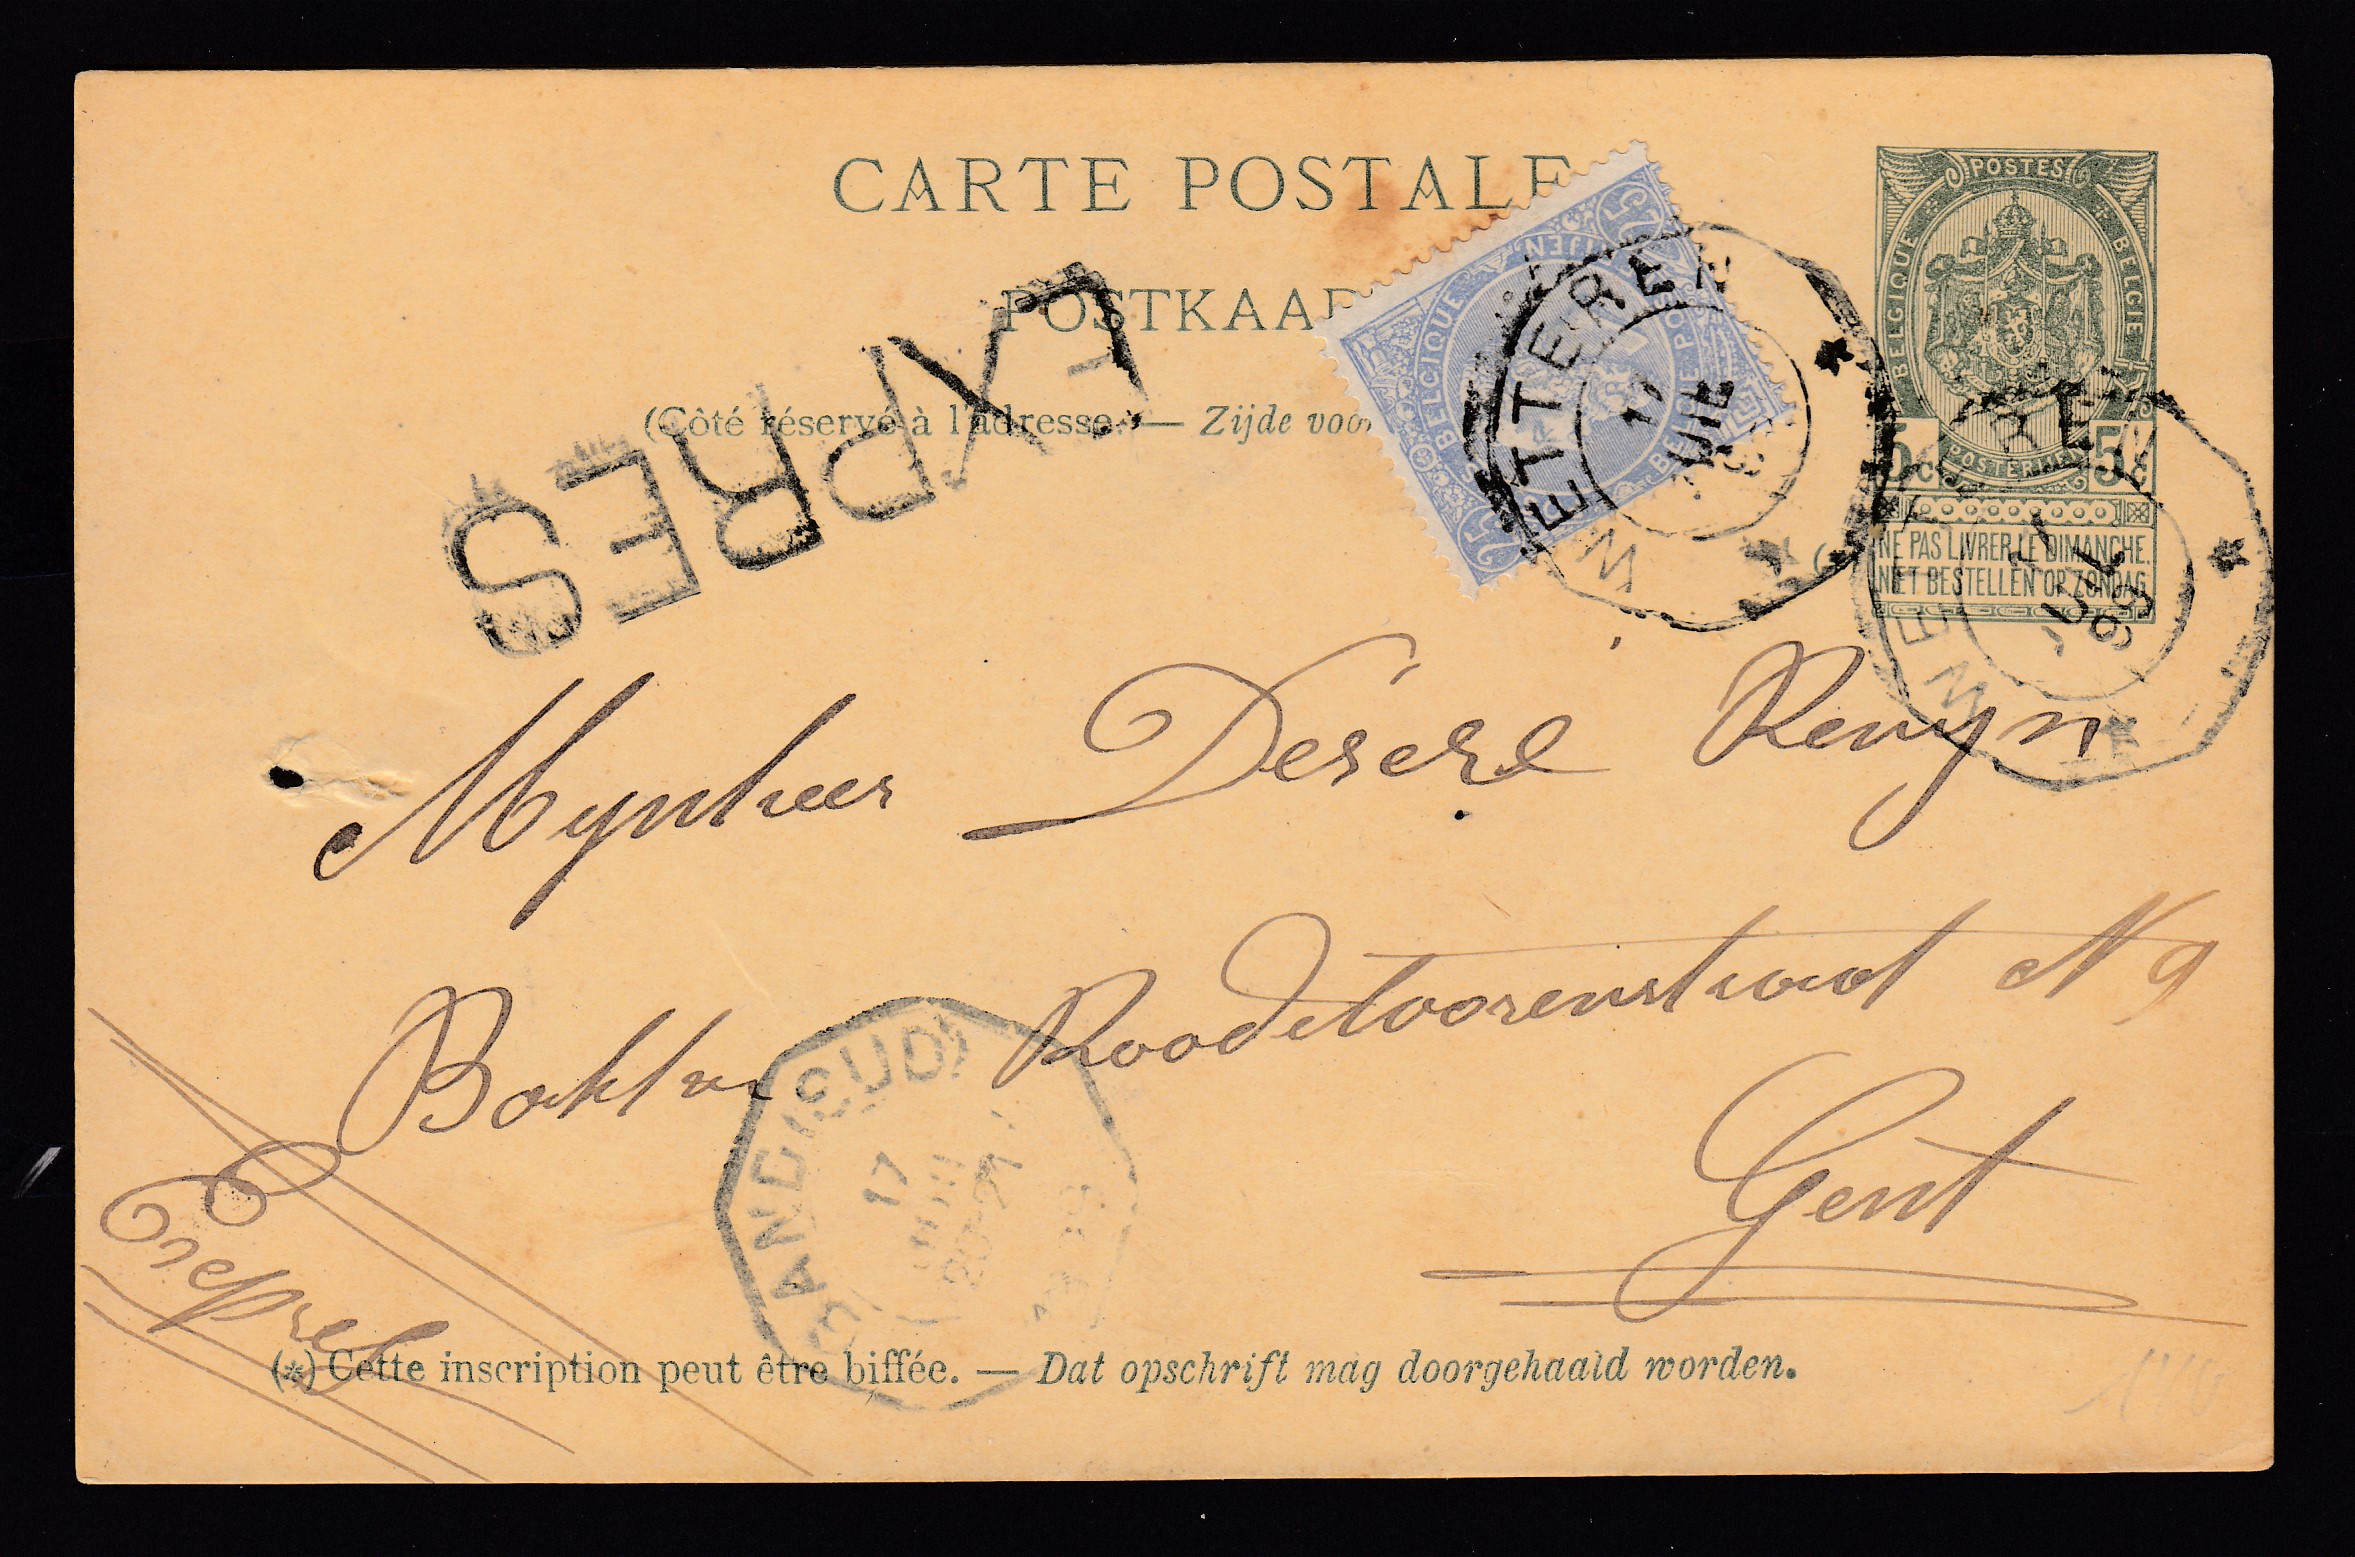 CARTE POSTALE
POSTKAAR
(Côté réservé à l'adresse. — Zijde voor
EXPRES
POSTES
BELGIQUE BELGIE
POSTERIJEN
5c 5c
NE PAS LIVRER LE DIMANCHE.
NIET BESTELLEN OP ZONDAG.
25 BELGIQUE
25
WETTEREN
17 JUIL
WETTEREN
17 JUIL
Mynheer Désiré
Roodetoorenstraat N 9
Gent
GAND (SUD)
17
Expres
(*) Cette inscription peut être biffée. — Dat opschrift mag doorgehaald worden.